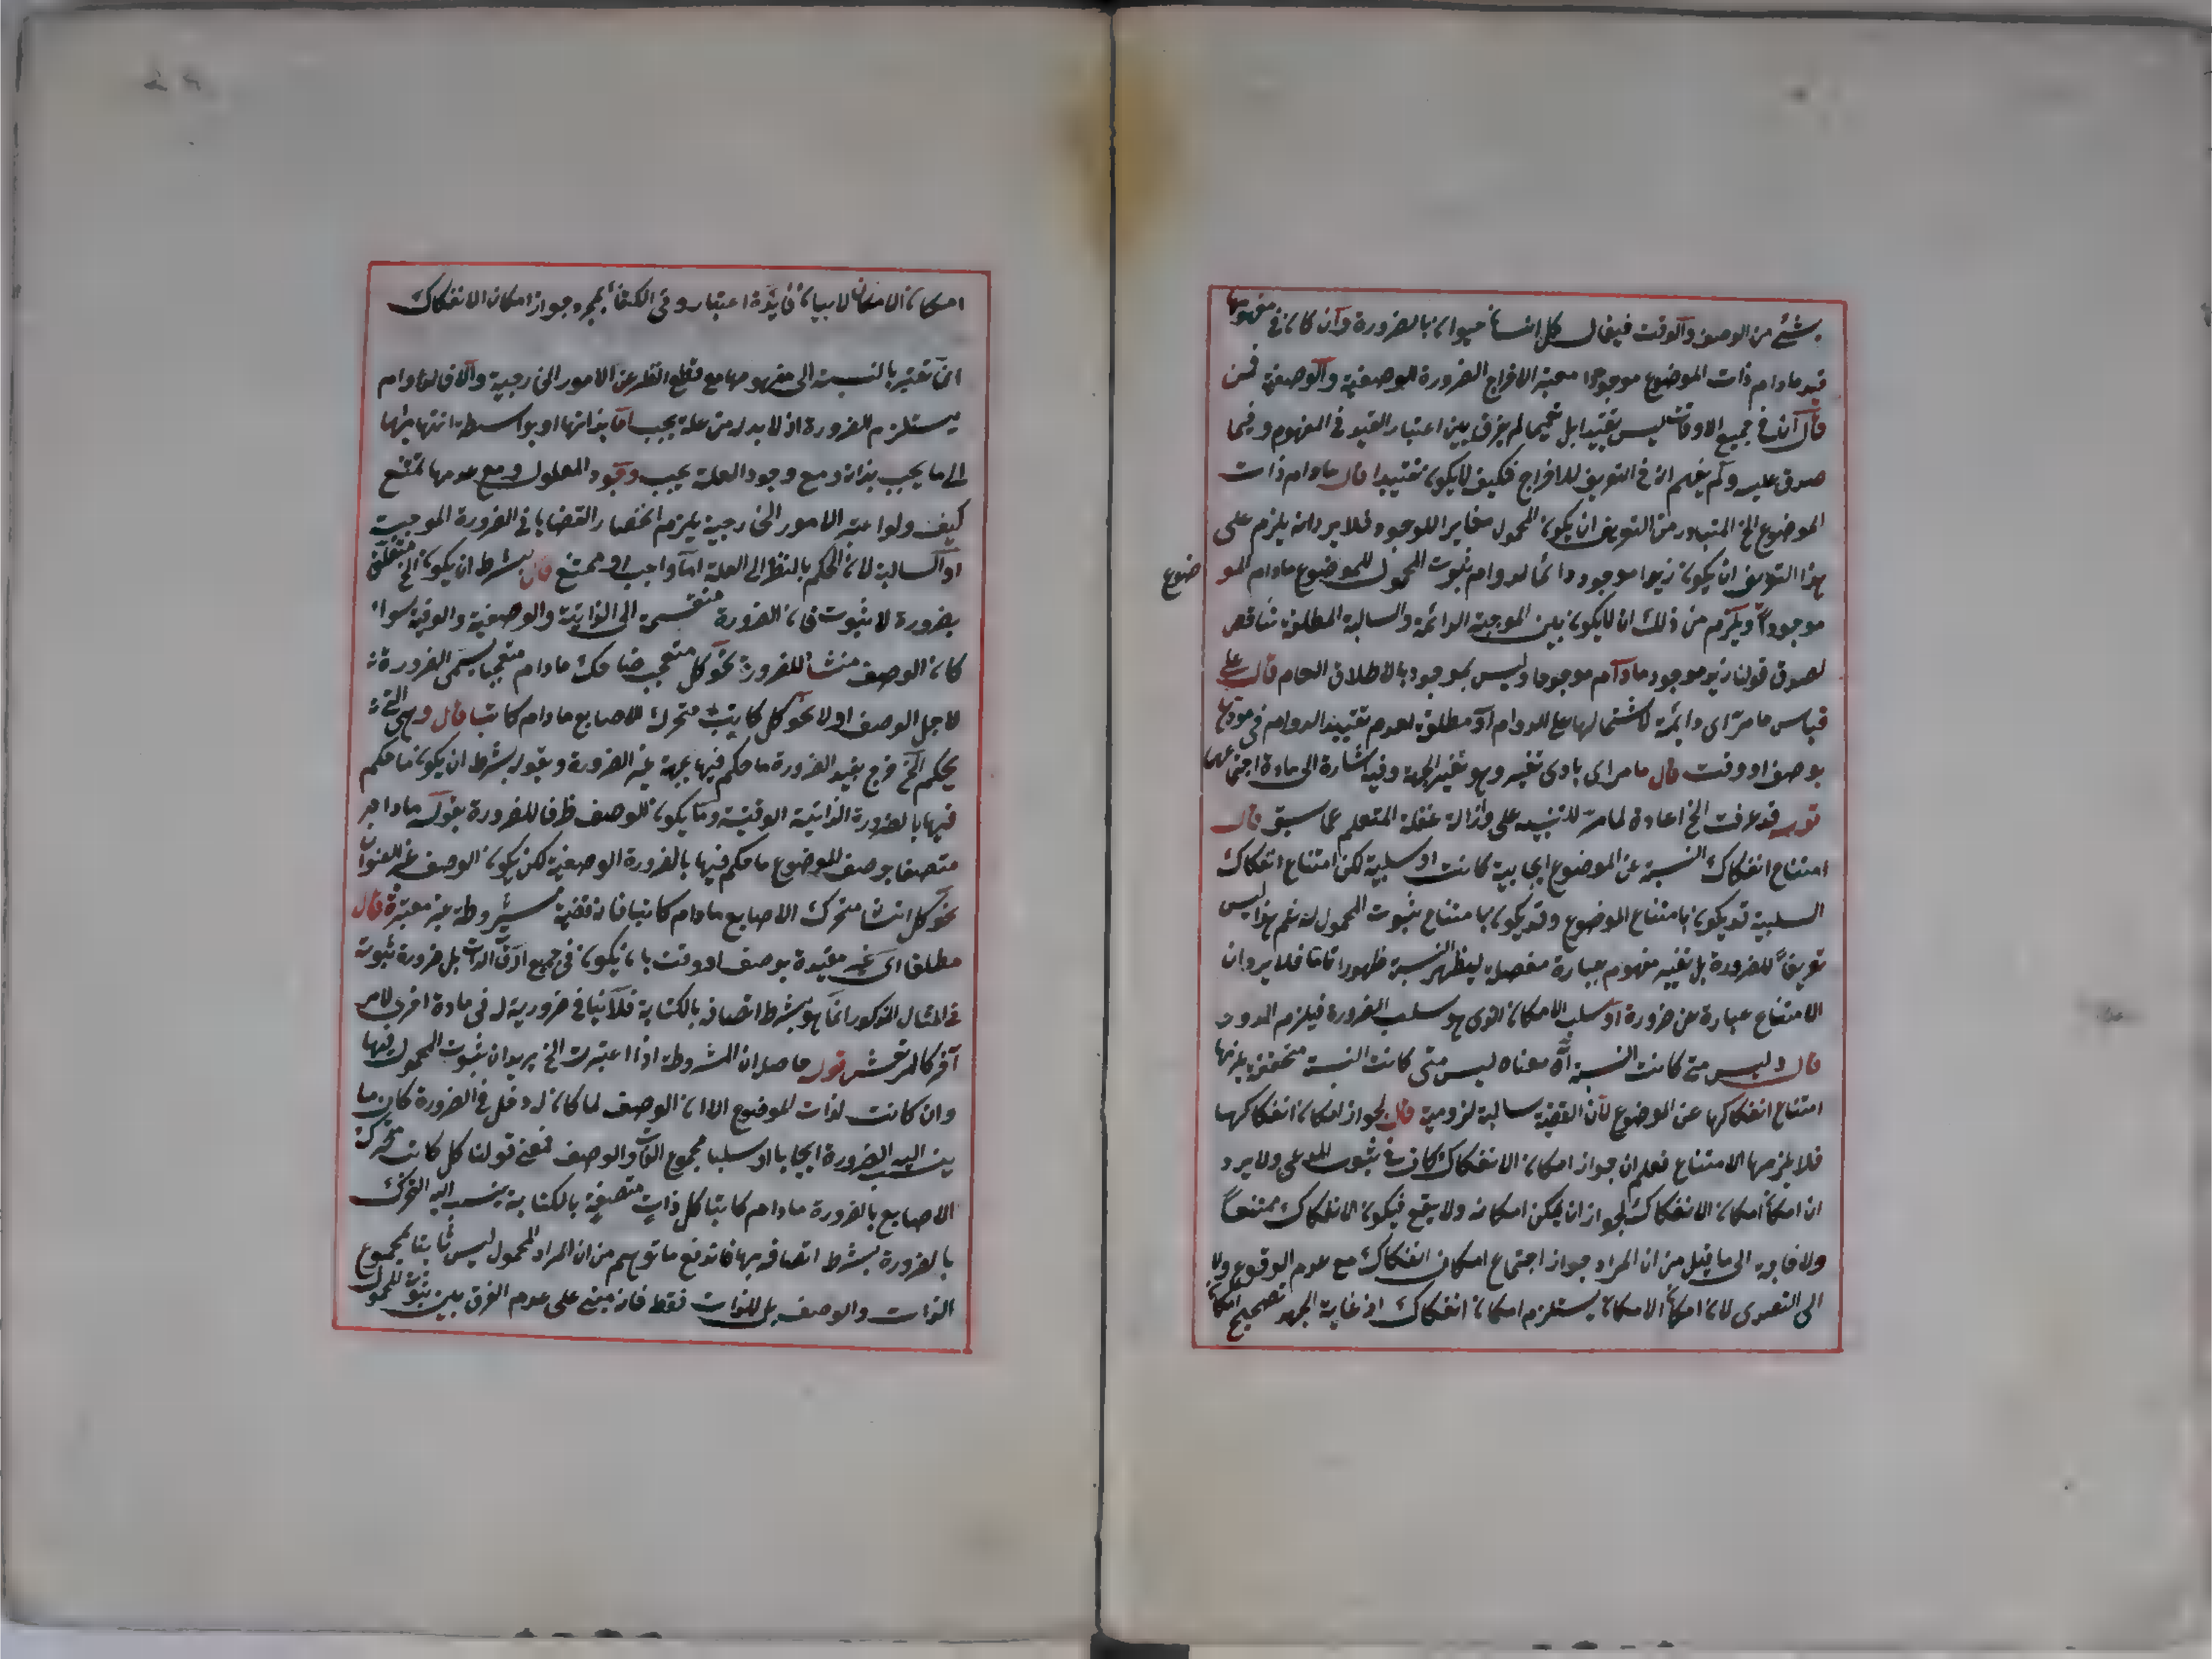 بشئ من الوصف والوقت فيقال كل انسان حيوان بالضرورة وان كان في مفهومها
قيد مادام ذات الموضوع موجودا معتبة الاخراج الضرورة الوصفية والوصفية فمن
قال انك في جميع الاوقات ليس تقييدا بل تعميما لم يفرق بين اعتبار القيد في المفهوم وفيما
صدق عليه ولم يفهم انه في التعريف للاخراج فكيف لا يكون تقييدا قال مادام ذات
الموضوع الخ المتبادر من التعريف ان يكون المحمول مغايرا للوجود فلا يرد انه يلزم على
هذا التعريف ان يكون زيد موجود دائما لدوام ثبوت المحمول للموضوع مادام الموضوع
موجودا ويلزم من ذلك ان لا يكون بين الموجبة الدائمة والسالبة المطلقة تناقض
لصدق قولنا زيد موجود مادام موجودا وليس بموجود بالاطلاق العام قال على
قياس ما مر اى دائمة لاشتمالها على الدوام او مطلقة لعدم تقييد الدوام في
بوصف او وقت قال ما مر اى بادى تغيير وهو تغيير الجهة وفيه اشارة الى مادة اجتماعهما
قوله قد عرفت الخ اعادة لما مر للتنبيه على وازالة غفلة المتعلم عما سبق قال
امتناع انفكاك النسبة عن الموضوع ايجابية كانت او سلبية لكن امتناع انفكاك
السلبية قد يكون بامتناع الموضوع وقد يكون بامتناع ثبوت المحمول له نعم هذا ليس
تعريفا للضرورة بل تغيير مفهوم بعبارة مفصلة ليظهر النسبة ظهورا تاما فلا يرد ان
الامتناع عبارة عن ضرورة او سلب الامكان الذى هو سلب الضرورة فيلزم الدور
قال وليس متى كانت النسبة اه معناه ليس متى كانت النسبة متحققة يلزمها
امتناع انفكاكها عن الموضوع لان القضية سالبة لزومية قال لجواز امكان انفكاكها
فلا يلزمها الامتناع فعلم ان جواز امكان الانفكاك كاف في ثبوت المدعى ولا يرد
ان امكان امكان الانفكاك لجواز ان يمكن امكانه ولا يقع فيكون الانفكاك ممتنعا
ولا حاجة الى ما قيل من ان المراد جواز اجتماع امكان انفكاك مع عدم الوقوع ولا
الى التصدى لان امكان الامكان يستلزم امكان انفكاك اذ غاية الجهد تصحيح امكان
امكان الامكان لا بيان فايدة اعتباره وفي الكتفا بمجرد جواز امكان الانفكاك
انما تعتبر بالنسبة الى مفهومها مع قطع النظر عن الامور الخارجية والا فالدوام
يستلزم الضرورة اذ لا بد له من علة يجب اما بذاتها او بواسطة انتهائها
الى ما يجب بذاته ومع وجود العلة يجب وجود المعلول ومع عدمها يمتنع
كيف ولو اعتبر الامور الخارجية يلزم انحصار القضايا في الضرورة الموجبة
او السالبة لان الحكم بالنظر الى العلة اما واجب او ممتنع قال بشرط ان يكون الخ متعلق
بضرورة لا بثبوت فان الضرورة منقسمة الى الذاتية والوصفية والوقتية سواء
كان الوصف منشأ للضرورة نحو كل متعجب ضاحك مادام متعجبا يسمى الضرورة
لاجل الوصف او لا نحو كل كاتب متحرك الاصابع مادام كاتبا قال وهى التى
يحكم الخ خرج بقيد الضرورة ما حكم فيها بجهة غير الضرورة وبقوله بشرط ان يكون ما حكم
فيها بالضرورة الذاتية الوقتية وما يكون الوصف ظرفا للضرورة بقوله مادام
متصفا بوصف الموضوع ما حكم فيها بالضرورة الوصفية لكن يكون الوصف غير العنوان
نحو كل انسان متحرك الاصابع مادام كاتبا فانه قضية مشروطة غير معتبرة قال
مطلقا اى غير مقيدة بوصف او وقت بان يكون في جميع اوقات الذات بل ضرورة ثبوته
في المثال المذكور انما هو بشرط اتصافه بالكتابة فلا ينافى ضرورية له في مادة اخرى لامر
آخر كالمرتعش قوله حاصله ان المشروطة اذا اعتبرت الخ يريد ان ثبوت المحمول فيها
وان كانت لذات الموضوع الا ان الوصف لما كان له دخل في الضرورة كان ما
ينسب اليه الضرورة ايجابا او سلبا مجموع الذات والوصف فمعنى قولنا كل كاتب متحرك
الاصابع بالضرورة مادام كاتبا كل ذات متصفة بالكتابة ينسب اليه التحرك
بالضرورة بشرط اتصافه بها فاندفع ما توهم من ان المراد المحمول ليس ثابتا لمجموع
الذات والوصف بل للذات فقط فانه مبنى على عدم الفرق بين ثبوت المحمول